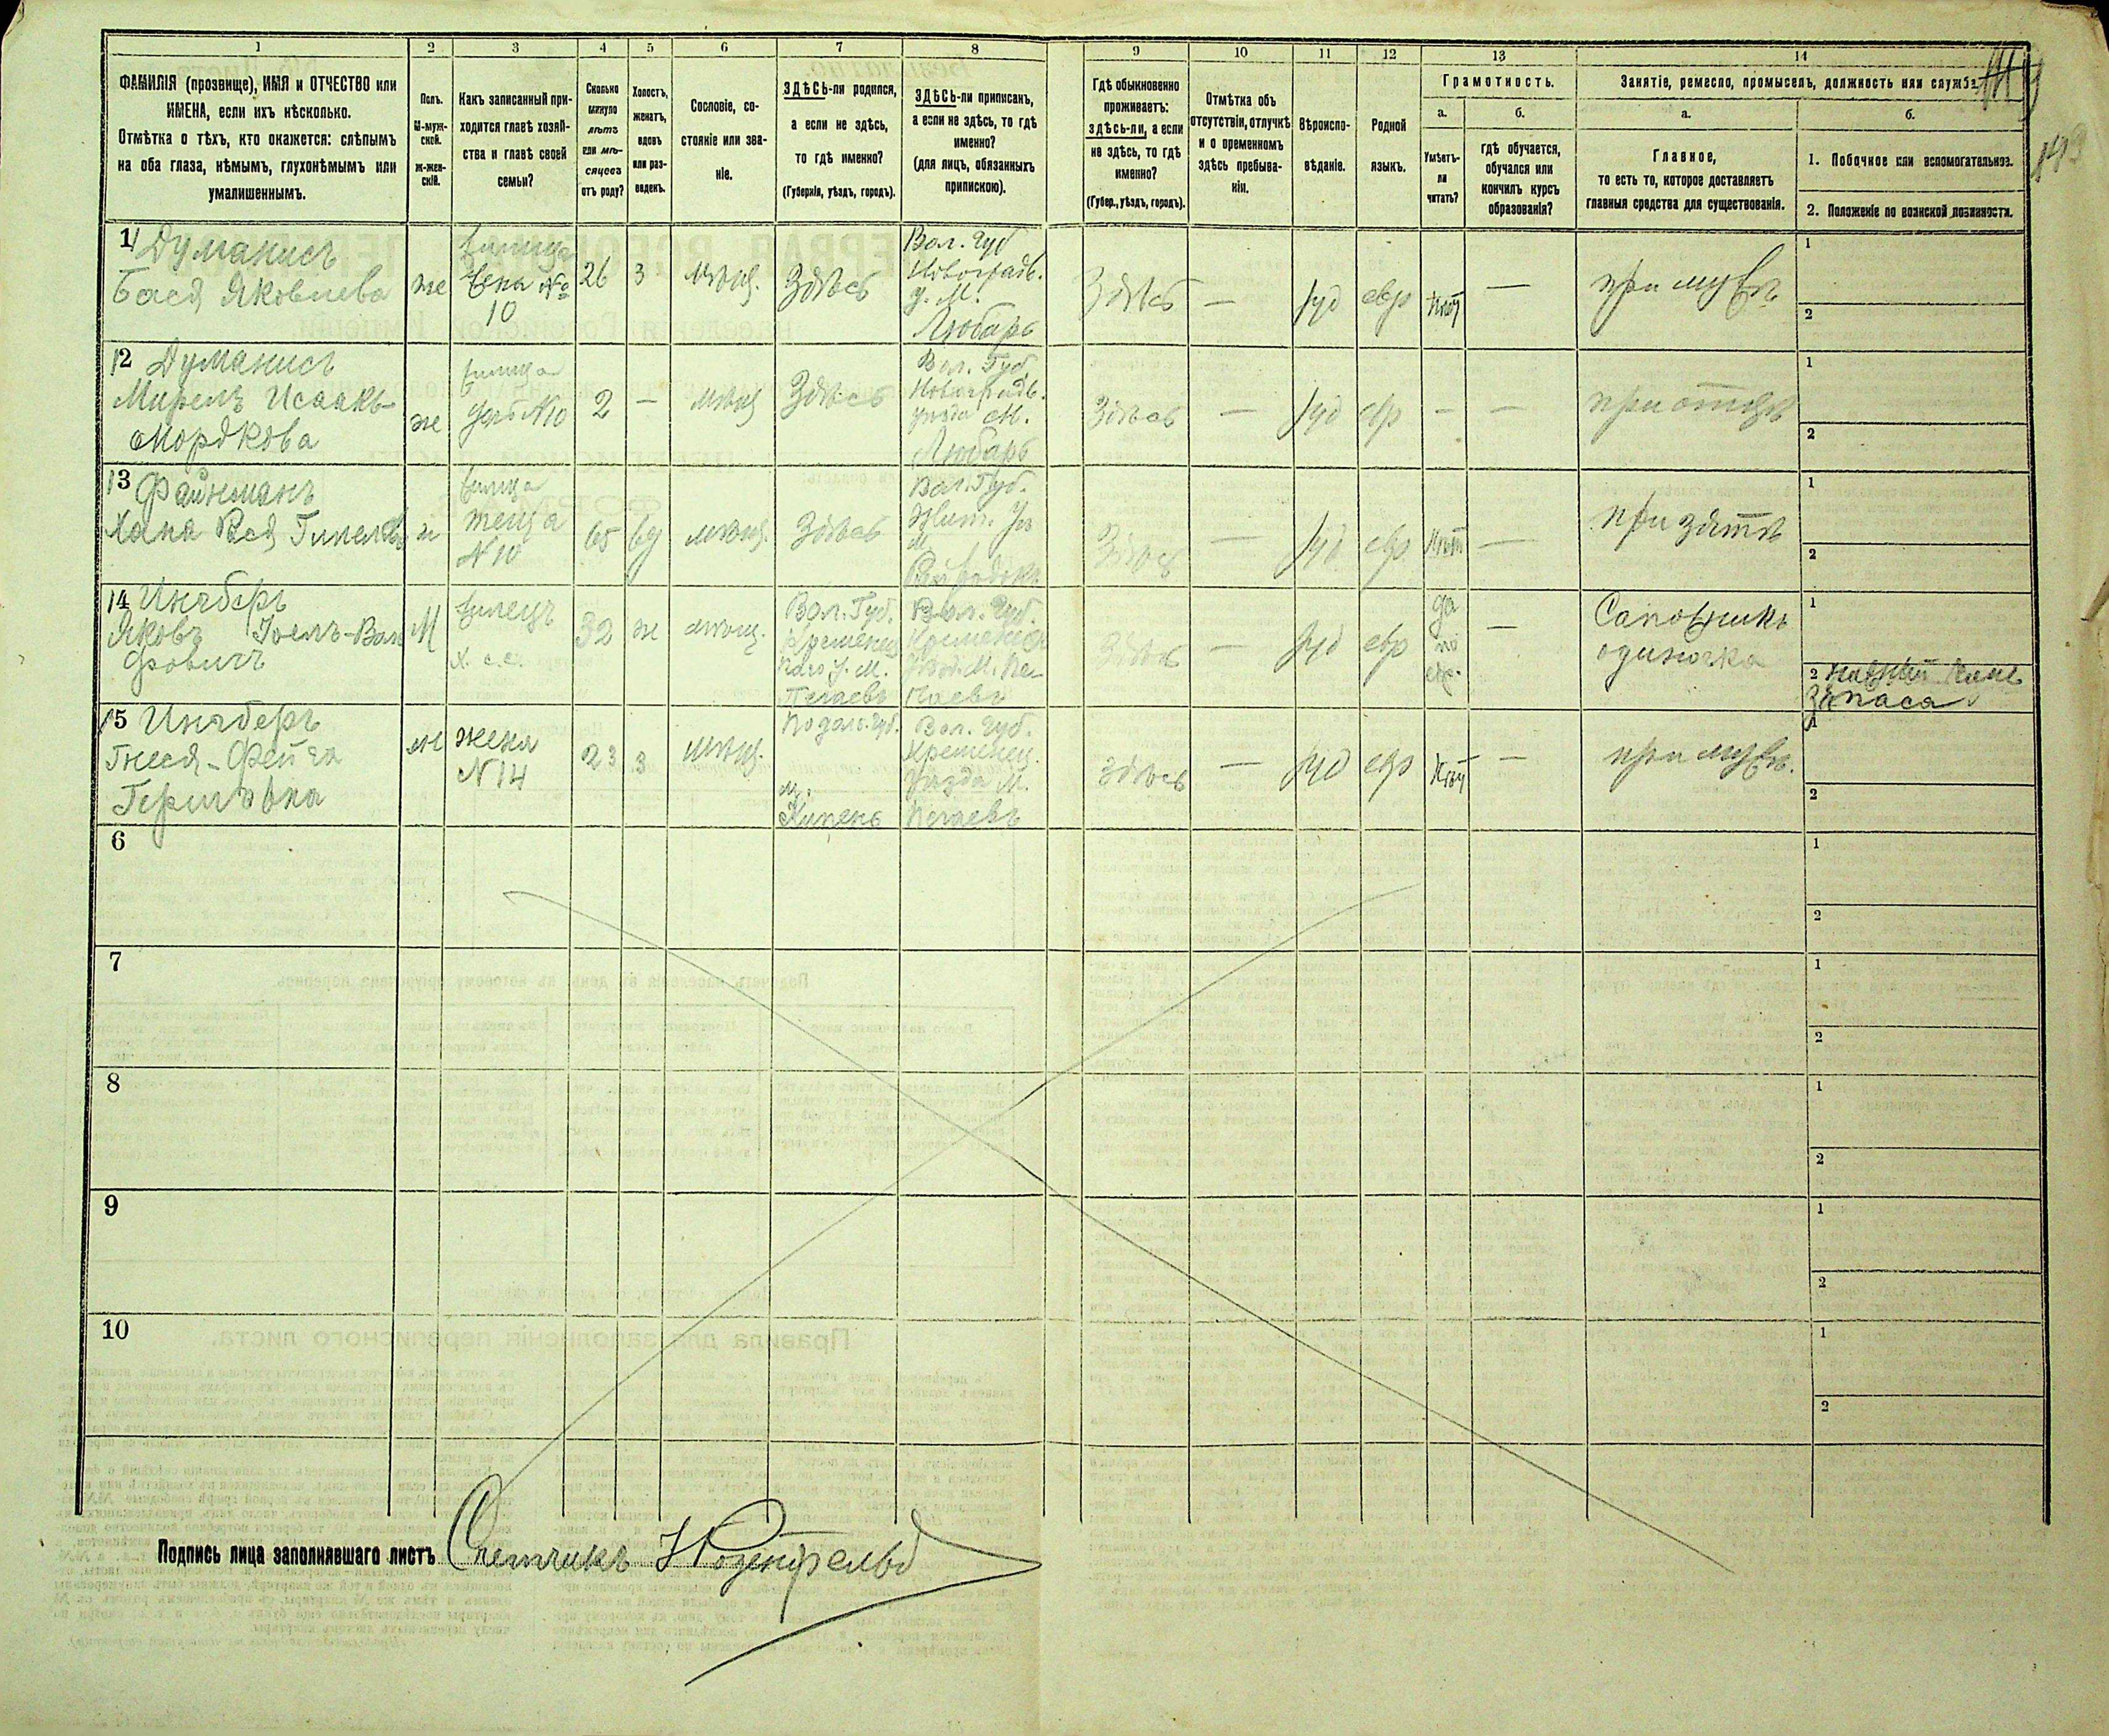 1 2 3 4 5 6 7 8 9 10 11 12 13 14
ФАМИЛІЯ (прозвище), ИМЯ и ОТЧЕСТВО или
ИМЕНА, если ихъ нѣсколько.
Отмѣтка о тѣхъ, кто окажется: слѣпымъ
на оба глаза, нѣмымъ, глухонѣмымъ или
умалишеннымъ.
Полъ.
М-муж-
ской.
Ж-жен-
скій.
Какъ записанный при-
ходится главѣ хозяй-
ства и главѣ своей
семьи?
Сколько
минуло
лѣтъ
или мѣ-
сяцевъ
отъ роду?
Холостъ,
женатъ,
вдовъ
или раз-
веденъ.
Сословіе, со-
стояніе или зва-
ніе.
ЗДѢСЬ-ли родился,
а если не здѣсь,
то гдѣ именно?
(Губернія, уѣздъ, городъ).
ЗДѢСЬ-ли приписанъ,
а если не здѣсь, то гдѣ
именно?
(для лицъ, обязанныхъ
припискою).
Гдѣ обыкновенно
проживаетъ:
здѣсь-ли, а если
не здѣсь, то гдѣ
именно?
(Губер., уѣздъ, городъ).
Отмѣтка объ
отсутствіи, отлучкѣ
и о временномъ
здѣсь пребыва-
ніи.
Вѣроиспо-
вѣданіе.
Родной
языкъ.
Грамотность.
а.
Умѣетъ-
ли
читать?
б.
гдѣ обучается,
обучался или
кончилъ курсъ
образованія?
Занятіе, ремесло, промыселъ, должность или служба.
а.
Главное,
то есть то, которое доставляетъ
главныя средства для существованія.
б.
1. Побочное или вспомогательное.
2. Положеніе по воинской повинности.
11 Думанисъ
Бася Яковлева
же
жена №
10
26
з
мѣщ.
Здѣсь
Вол. Губ
Новоградв.
у. М.
Любаръ
Здѣсь
—
іуд
евр
нѣт
—
при мужѣ
1
2
12 Думанисъ
Мирель Исаакъ-
Мордкова
же
дочь N10
2
—
мѣщ
Здѣсь
Вол. Губ.
Новоградв.
уезда М.
Любаръ
Здѣсь
—
іуд
евр
—
—
при отцѣ
1
2
13 Файнманъ
Хана
теща
N10
65
вд
мѣщ.
Здѣсь
Вол. Губ.
Жит. Уѣ
м
Здѣсь
—
іуд
евр
нѣт
—
при зятѣ
1
2
14 Ингберъ
Яковъ Іоель-Воль
фовичъ
М
жилецъ
32
ж
мѣщ.
Вол. Губ.
Кременец
М.
Почаевъ
Вол. Губ.
Кременец
М. По-
чаевъ
Здѣсь
—
іуд
евр
да
по
евр.
—
Сапожникъ
одиночка
1
2
запаса
15 Ингберъ
Гнеся-Фейга
Гершъвна
же
жена
N14
23
з
мѣщ.
Подол. Губ.
м.
Вол. Губ.
Кременец.
уезда М.
Почаевъ
здѣсь
—
іуд
евр
нѣт
—
при мужѣ.
1
2
6
1
2
7
1
2
8
1
2
9
1
2
10
1
2
Подпись лица заполнявшаго листъ Счетчикъ Розенфельд